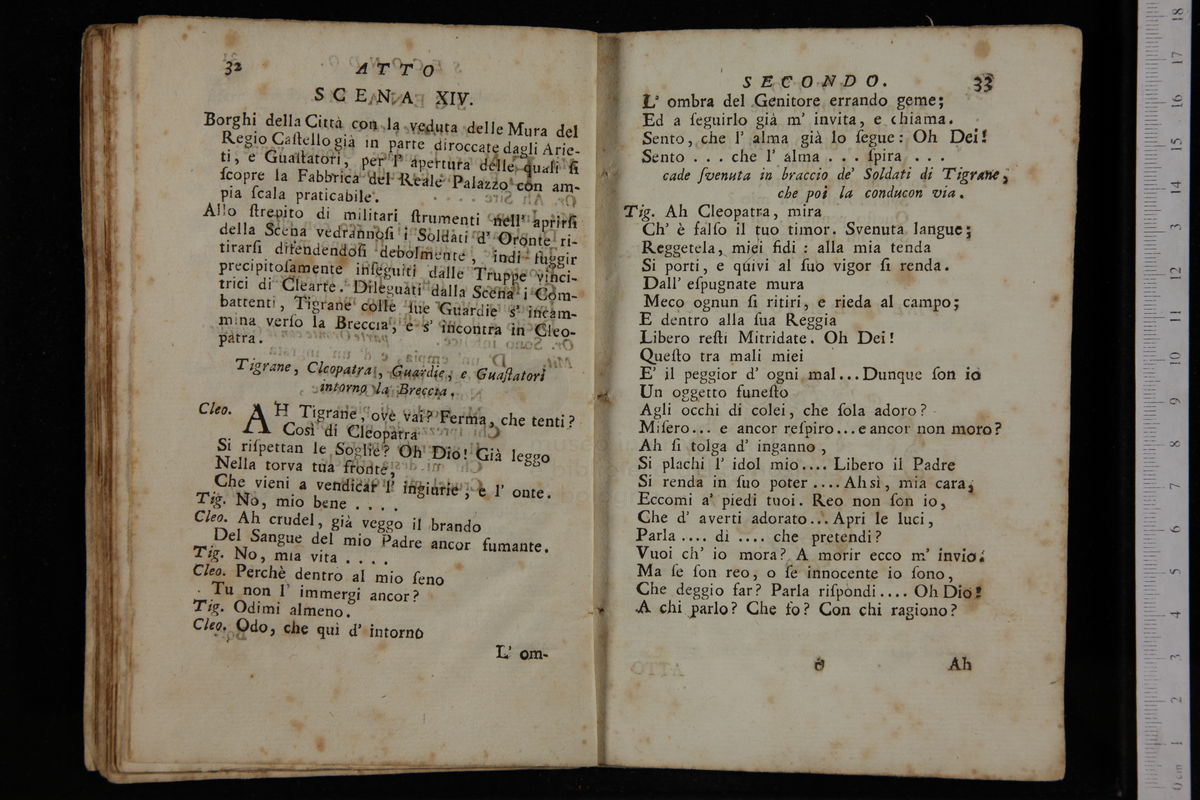 32
ATTO
SCENA XIV.
Borghi della Città con la veduta delle Mura del
Regio Caſtello già in parte diroccate dagli Arie-
ti, e Guaſtatori, per l' apertura delle quali ſi
ſcopre la Fabbrica del Reale Palazzo con am-
pia ſcala praticabile.
Allo ſtrepito di militari ſtrumenti nell' aprirſi
della Scena vedrannoſi i Soldati d' Oronte ri-
tirarſi difendendoſi debolmente, indi fuggir
precipitoſamente inſeguiti dalle Truppe vinci-
trici di Clearte. Dileguati dalla Scena i Com-
battenti, Tigrane colle ſue Guardie s' incam-
mina verſo la Breccia, e s' incontra in Cleo-
patra.
Tigrane, Cleopatra, Guardie, e Guaſtatori
intorno la Breccia.
Cleo. AH Tigrane, ove vai? Ferma, che tenti?
Così di Cleopatra
Si riſpettan le Soglie? Oh Dio! Già leggo
Nella torva tua fronte,
Che vieni a vendicar l' ingiurie, e l' onte.
Tig. No, mio bene . . . .
Cleo. Ah crudel, già veggo il brando
Del Sangue del mio Padre ancor fumante.
Tig. No, mia vita . . . .
Cleo. Perchè dentro al mio ſeno
Tu non l' immergi ancor?
Tig. Odimi almeno.
Cleo. Odo, che quì d' intorno
L' om-
SECONDO.
33
L' ombra del Genitore errando geme;
Ed a ſeguirlo già m' invita, e chiama.
Sento, che l' alma già lo ſegue: Oh Dei!
Sento . . . che l' alma . . . ſpira . . .
cade ſvenuta in braccio de' Soldati di Tigrane,
che poi la conducon via.
Tig. Ah Cleopatra, mira
Ch' è falſo il tuo timor. Svenuta langue;
Reggetela, miei fidi : alla mia tenda
Si porti, e quivi al ſuo vigor ſi renda.
Dall' eſpugnate mura
Meco ognun ſi ritiri, e rieda al campo;
E dentro alla ſua Reggia
Libero reſti Mitridate. Oh Dei!
Queſto tra mali miei
E' il peggior d' ogni mal...Dunque ſon io
Un oggetto funeſto
Agli occhi di colei, che ſola adoro?
Miſero... e ancor reſpiro...e ancor non moro?
Ah ſi tolga d' inganno,
Si plachi l' idol mio.... Libero il Padre
Si renda in ſuo poter .... Ah sì, mia cara,
Eccomi a' piedi tuoi. Reo non ſon io,
Che d' averti adorato... Apri le luci,
Parla .... dì .... che pretendi?
Vuoi ch' io mora? A morir ecco m' invio.
Ma ſe ſon reo, o ſe innocente io ſono,
Che deggio far? Parla riſpondi.... Oh Dio!
A chi parlo? Che fo? Con chi ragiono?
Ah